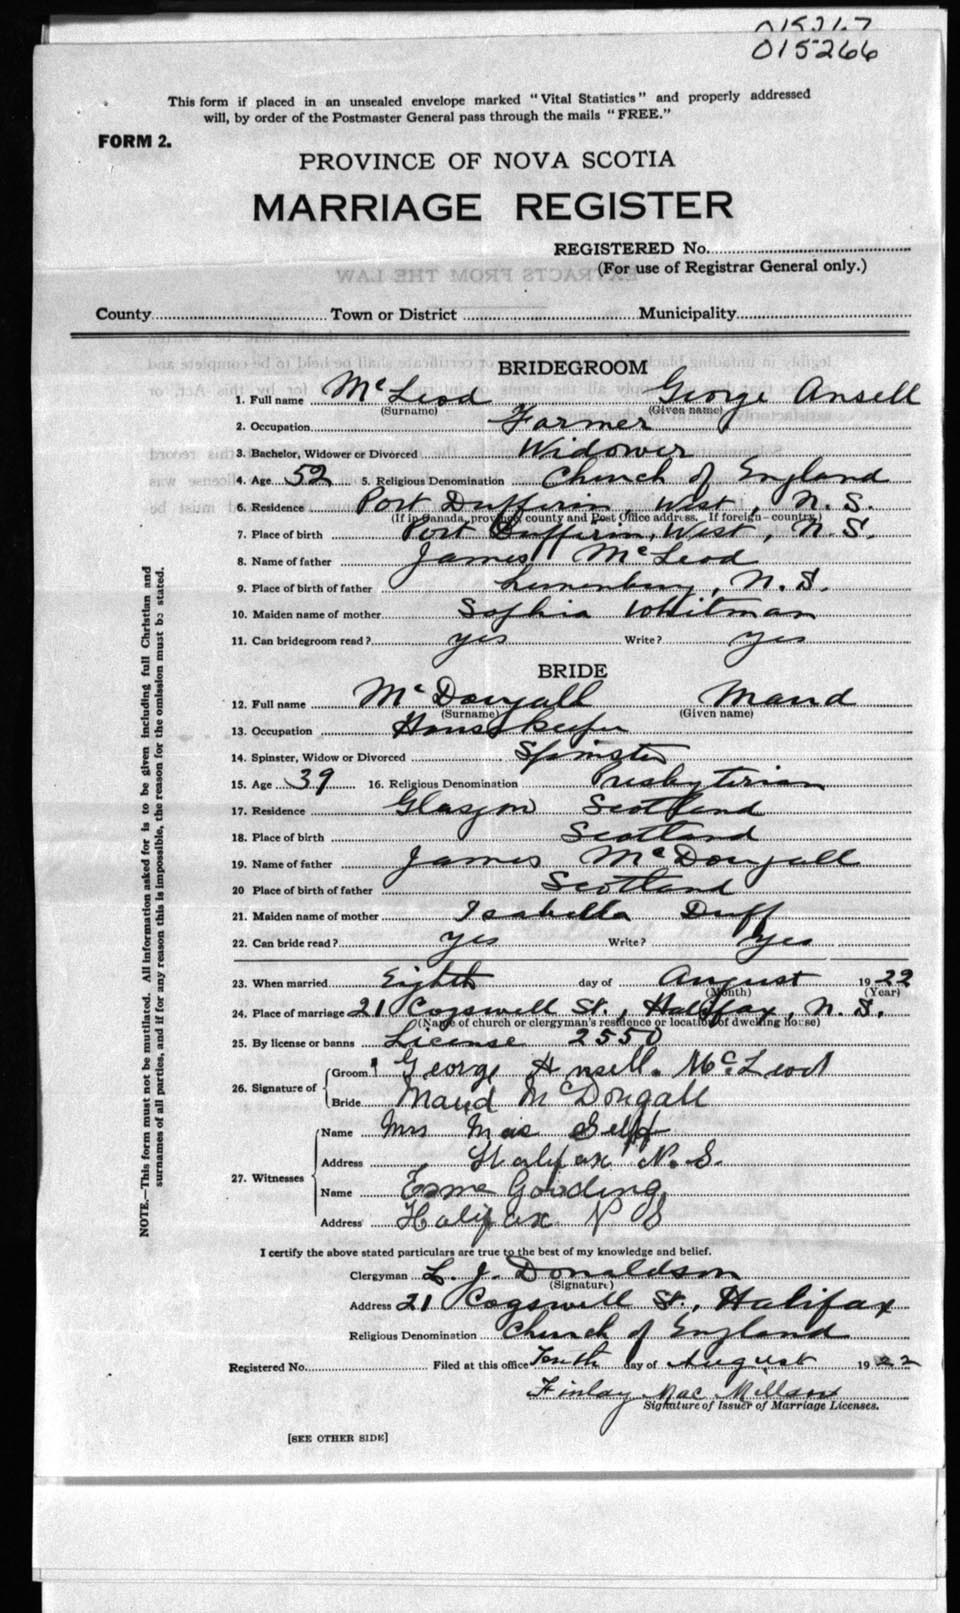 015267
015266
This form if placed in an unsealed envelope marked "Vital Statistics" and properly addressed
will, by order of the Postmaster General pass through the mails "FREE."
FORM 2.
PROVINCE OF NOVA SCOTIA
MARRIAGE REGISTER
REGISTERED No.
(For use of Registrar General only.)
EXTRACTS FROM THE LAW
County Town or District Municipality
BRIDEGROOM
1. Full name McLeod George Ansell
(Surname) (Given name)
2. Occupation Farmer
3. Bachelor, Widower or Divorced Widower
4. Age 52 5. Religious Denomination Church of England
6. Residence Port Dufferin, West, N.S.
(If in Canada, province, county and Post Office address. If foreign—country.)
7. Place of birth Port Dufferin, West, N.S.
8. Name of father James McLeod
9. Place of birth of father Lunenburg, N.S.
10. Maiden name of mother Sophia Whitman
11. Can bridegroom read? yes Write? yes
BRIDE
12. Full name McDougall Maud
(Surname) (Given name)
13. Occupation Housekeeper
14. Spinster, Widow or Divorced Spinster
15. Age 39 16. Religious Denomination Presbyterian
17. Residence Glasgow Scotland
18. Place of birth Scotland
19. Name of father James McDougall
20 Place of birth of father Scotland
21. Maiden name of mother Isabella Duff
22. Can bride read? yes Write? yes
23. When married Eighth day of August 1922
(Month) (Year)
24. Place of marriage 21 Cogswell St., Halifax, N.S.
(Name of church or clergyman's residence or location of dwelling house)
25. By license or banns License 2550
26. Signature of Groom George Ansell. McLeod
Bride Maud McDougall
27. Witnesses Name Mrs
Address Halifax N.S.
Name Gooding
Address Halifax N S
I certify the above stated particulars are true to the best of my knowledge and belief.
Clergyman L. J. Donaldson
(Signature)
Address 21 Cogswell St., Halifax
Religious Denomination Church of England
Registered No. Filed at this office Tenth day of August 1922
Finlay Mac Millan
Signature of Issuer of Marriage Licenses.
[SEE OTHER SIDE]
NOTE.—This form must not be mutilated. All information asked for is to be given including full Christian and
surnames of all parties, and if for any reason this is impossible, the reason for the omission must be stated.